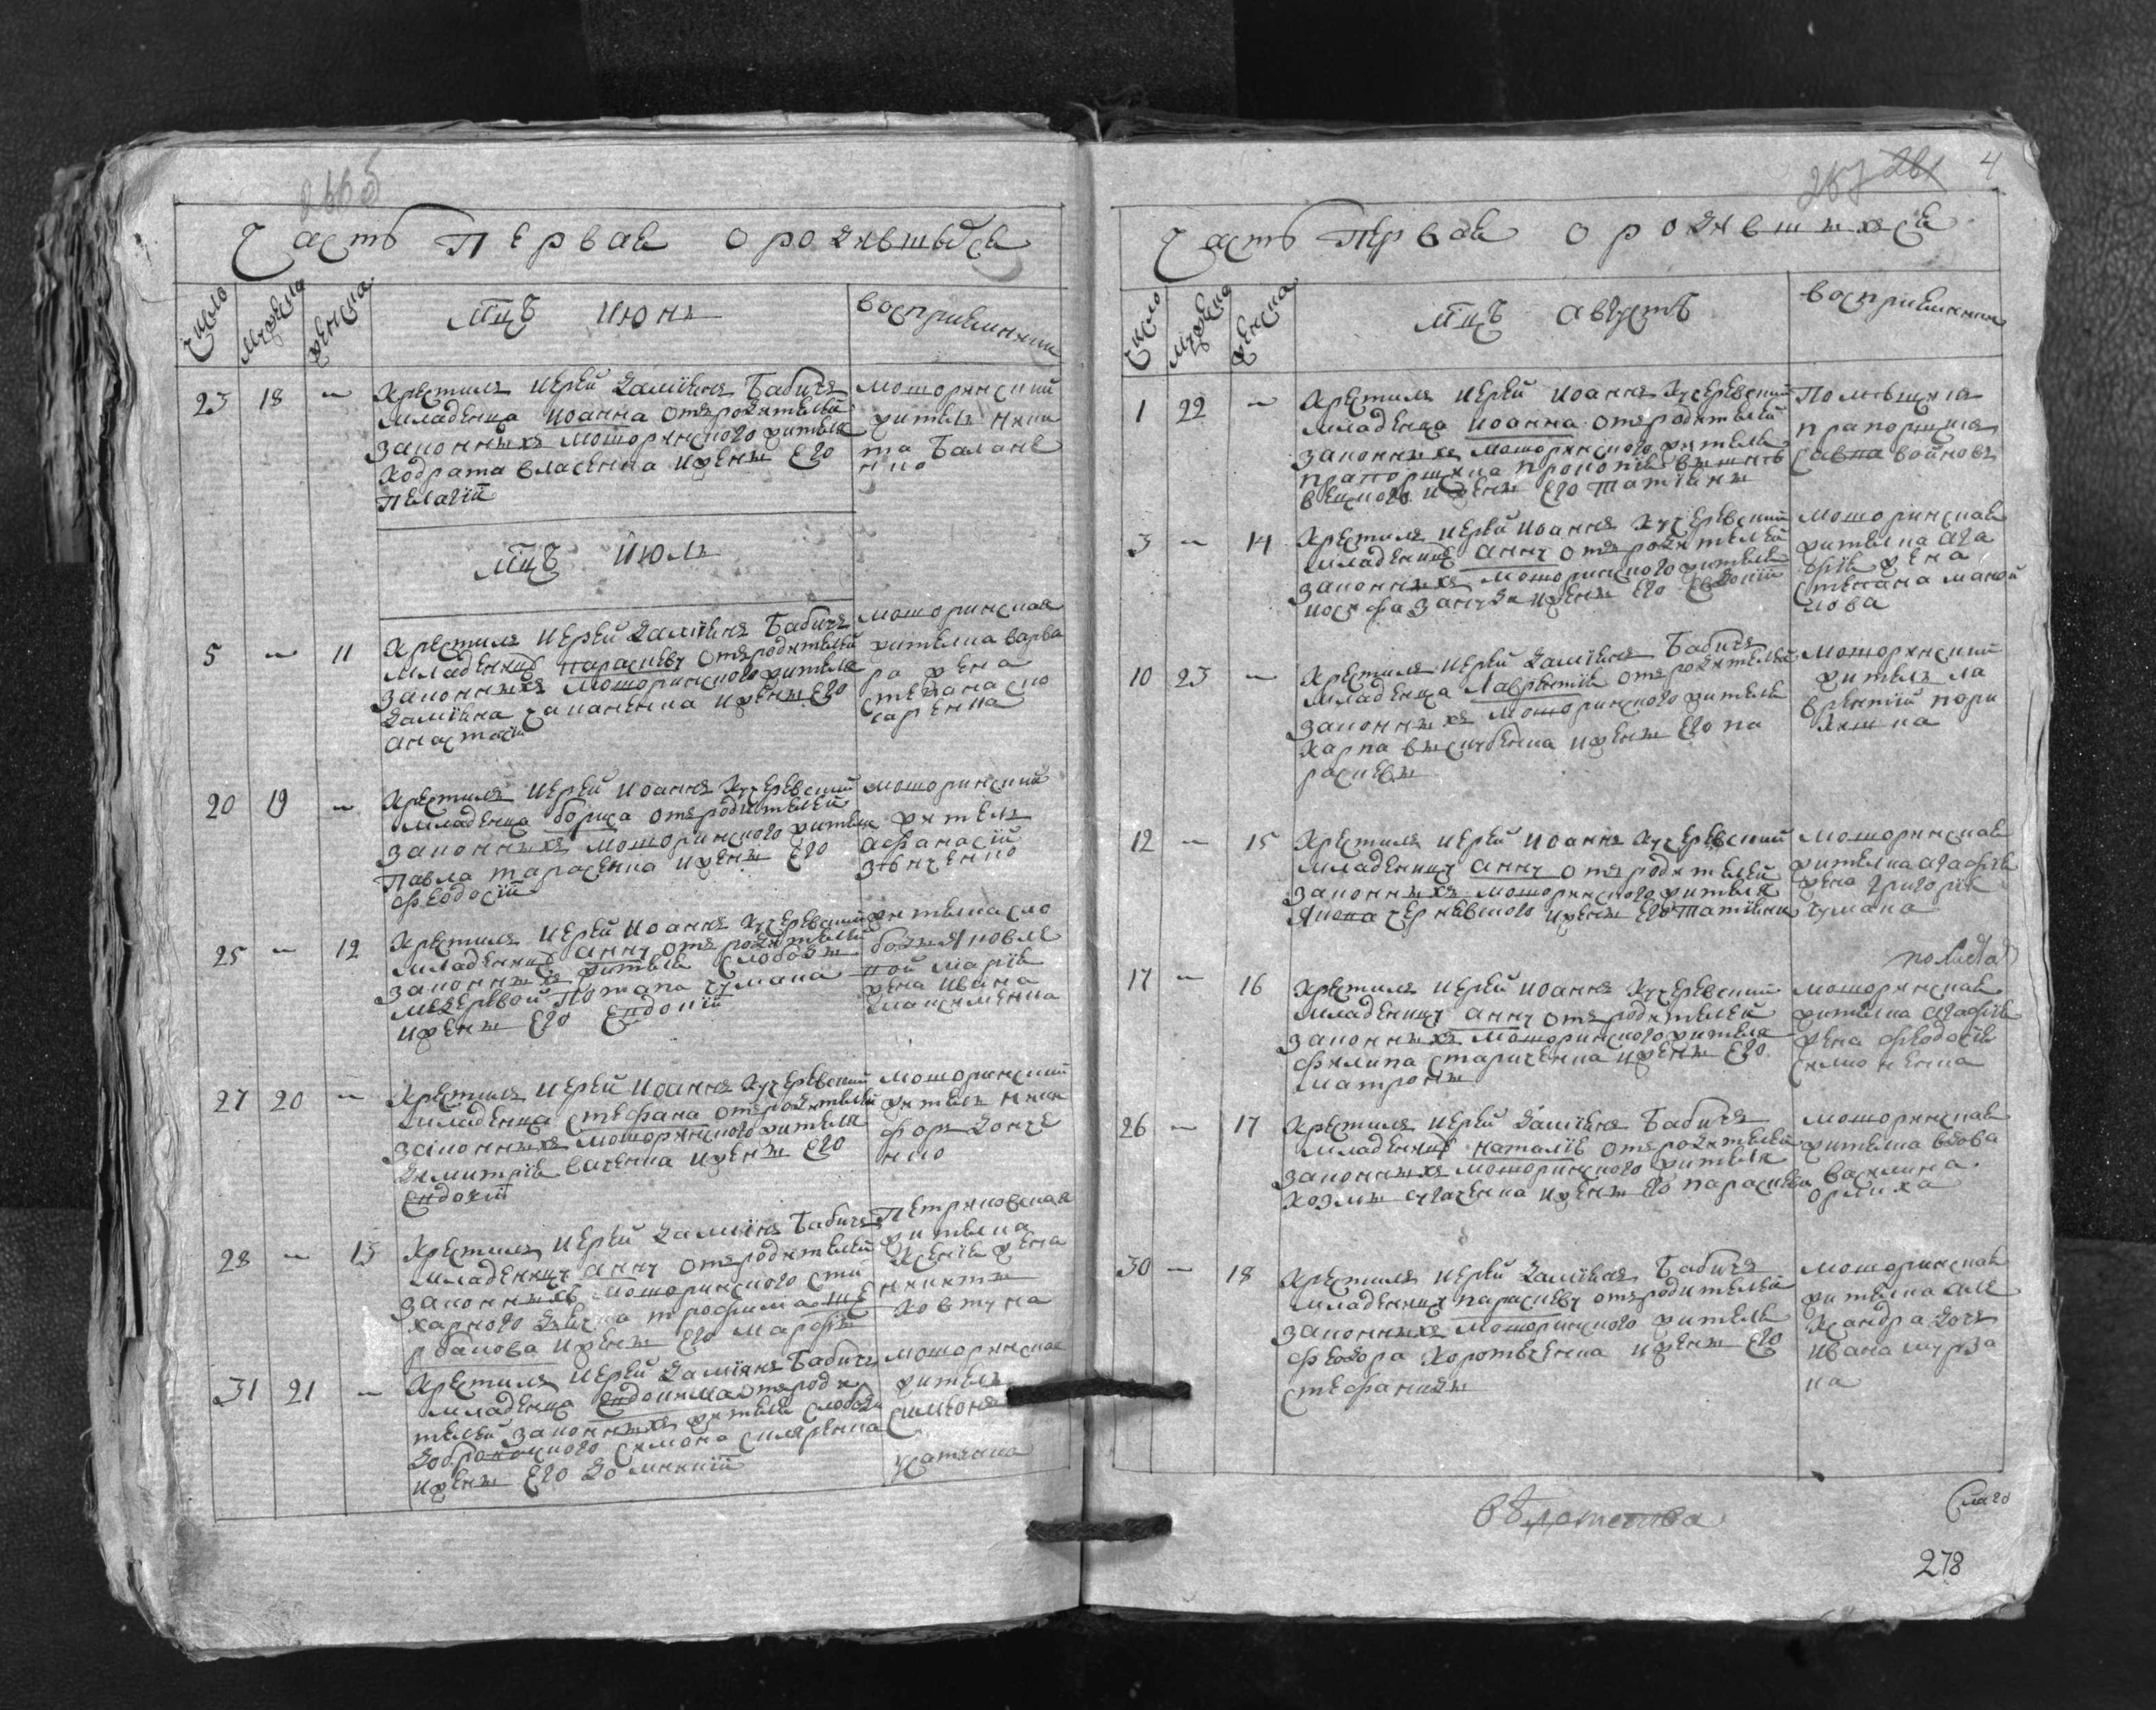 Часть Первая о родившыхся
число
мужеска
женска
мцъ июнь
восприемники
23 18 ~ Крестилъ иерей Даміянъ Бабичъ
младенца иоанна отъ родителей
законныхъ моторинского жителя
Кодрата власенка и жены его
Пелагіи
моторинский
житель ники
та Балане
нко
мцъ июль
5 ~ 11 Крестилъ иерей Даміянъ Бабичъ
младеницу параскеву отъ родителей
законныхъ моторинского жителя
Даміяна чапаненка и жены его
анастасіи
моторинская
жителка варва
ра жена
степана сло
20 19 ~ Крестилъ иерей иоаннъ Кучеревский
младенца бориса отъ родителей
законныхъ моторинского жителя
Павла тарасенка и жены его
феодосіи
моторинский
житель
афанасій
зѣнченко
25 ~ 12 Крестилъ иерей иоаннъ Кучеревский
младеницу анну отъ родителей
законныхъ жителя слободы
мезеревой Потапа чумака
и жены его евдокіи
жителка сло
боды Яновле
кой марія
жена ивана
максименка
27 20 ~ Крестилъ иерей иоаннъ Кучеревский
младенца стефана отъ родителей
законныхъ моторинского жителя
Димитрія ваченка и жены его
евдокіи
моторинский
житель ники
фор донче
нко
28 ~ 13 Крестилъ иерей Даміянъ Бабичъ
младеницу анну отъ родителей
законныхъ моторинского сти
харного дячка трофима ще
рбакова и жены его марфы
Петриковская
жителка
Ксенія жена
никиты
Ковтуна
31 21 ~ Крестилъ иерей Даміянъ Бабичъ
младенца евдокима отъ роди
телей законныхъ жителя слободы
симона скляренка
и жены его Домникіи
моторинский
житель
симеонъ
4
Часть первая о родившихся
число
мужеска
женска
мцъ августъ
восприемники
1 22 ~ Крестилъ иерей иоаннъ Кучеревский
младенца иоанна отъ родителей
законныхъ моторинского жителя
прапорщика прокопія вышнѣ
вецкого и жены его татіяны
Помѣщикъ
прапорщикъ
савва войновъ
3 ~ 14 Крестилъ иерей иоаннъ Кучеревский
младеницу анну отъ родителей
законныхъ моторинского жителя
иосифа и жены его евдокіи
моторинская
жителка ага
фія жена
степана
10 23 ~ Крестилъ иерей Даміянъ Бабичъ
младенца Лаврентія отъ родителей
законныхъ моторинского жителя
Карпа и жены его па
раскевы
моторинский
житель ла
врентій
12 ~ 15 Крестилъ иерей иоаннъ Кучеревский
младеницу анну отъ родителей
законныхъ моторинского жителя
Якова чернявского и жены его татіяны
моторинская
жителка агафія
жена григорія
чумака
17 ~ 16 Крестилъ иерей иоаннъ Кучеревский
младеницу анну отъ родителей
законныхъ моторинского жителя
филипа стариченка и жены его
матроны
моторинская
жителка агафія
жена феодосія
симоненка
26 ~ 17 Крестилъ иерей Даміянъ Бабичъ
младеницу наталію отъ родителей
законныхъ моторинского жителя
Козмы сугаченка и жены его параскевы
моторинская
жителка вдова
василина
орлиха
30 ~ 18 Крестилъ иерей Даміянъ Бабичъ
младеницу параскеву отъ родителей
законныхъ моторинского жителя
феодора Коротыченка и жены его
стефаниды
моторинская
жителка але
Ксандра дочь
ивана мурза
ка
278